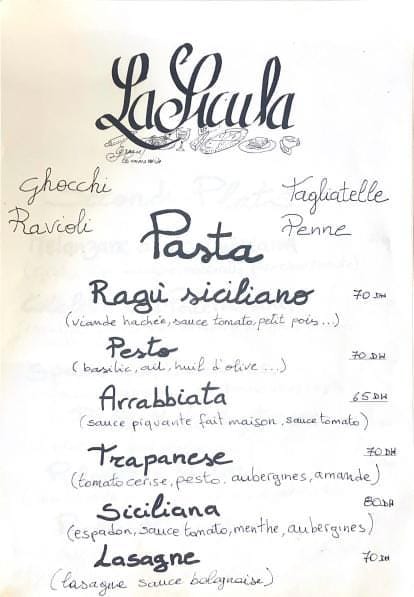 La Sicula
Ghocchi
Tagliatelle
Ravioli
Penne
Pasta
Ragù siciliano 70 DH
(viande hachée, sauce tomato, petit pois...)
Pesto 70 DH
(basilic, ail, huil d'olive ...)
Arrabbiata 65 DH
(sauce piquante fait maison, sauce tomato)
Trapanese 70 DH
(tomato cerise, pesto. aubergines, amande)
Siciliana 80 DH
(espadon, sauce tomato, menthe, aubergines)
Lasagne 70 DH
(lasagne sauce bolognaise)